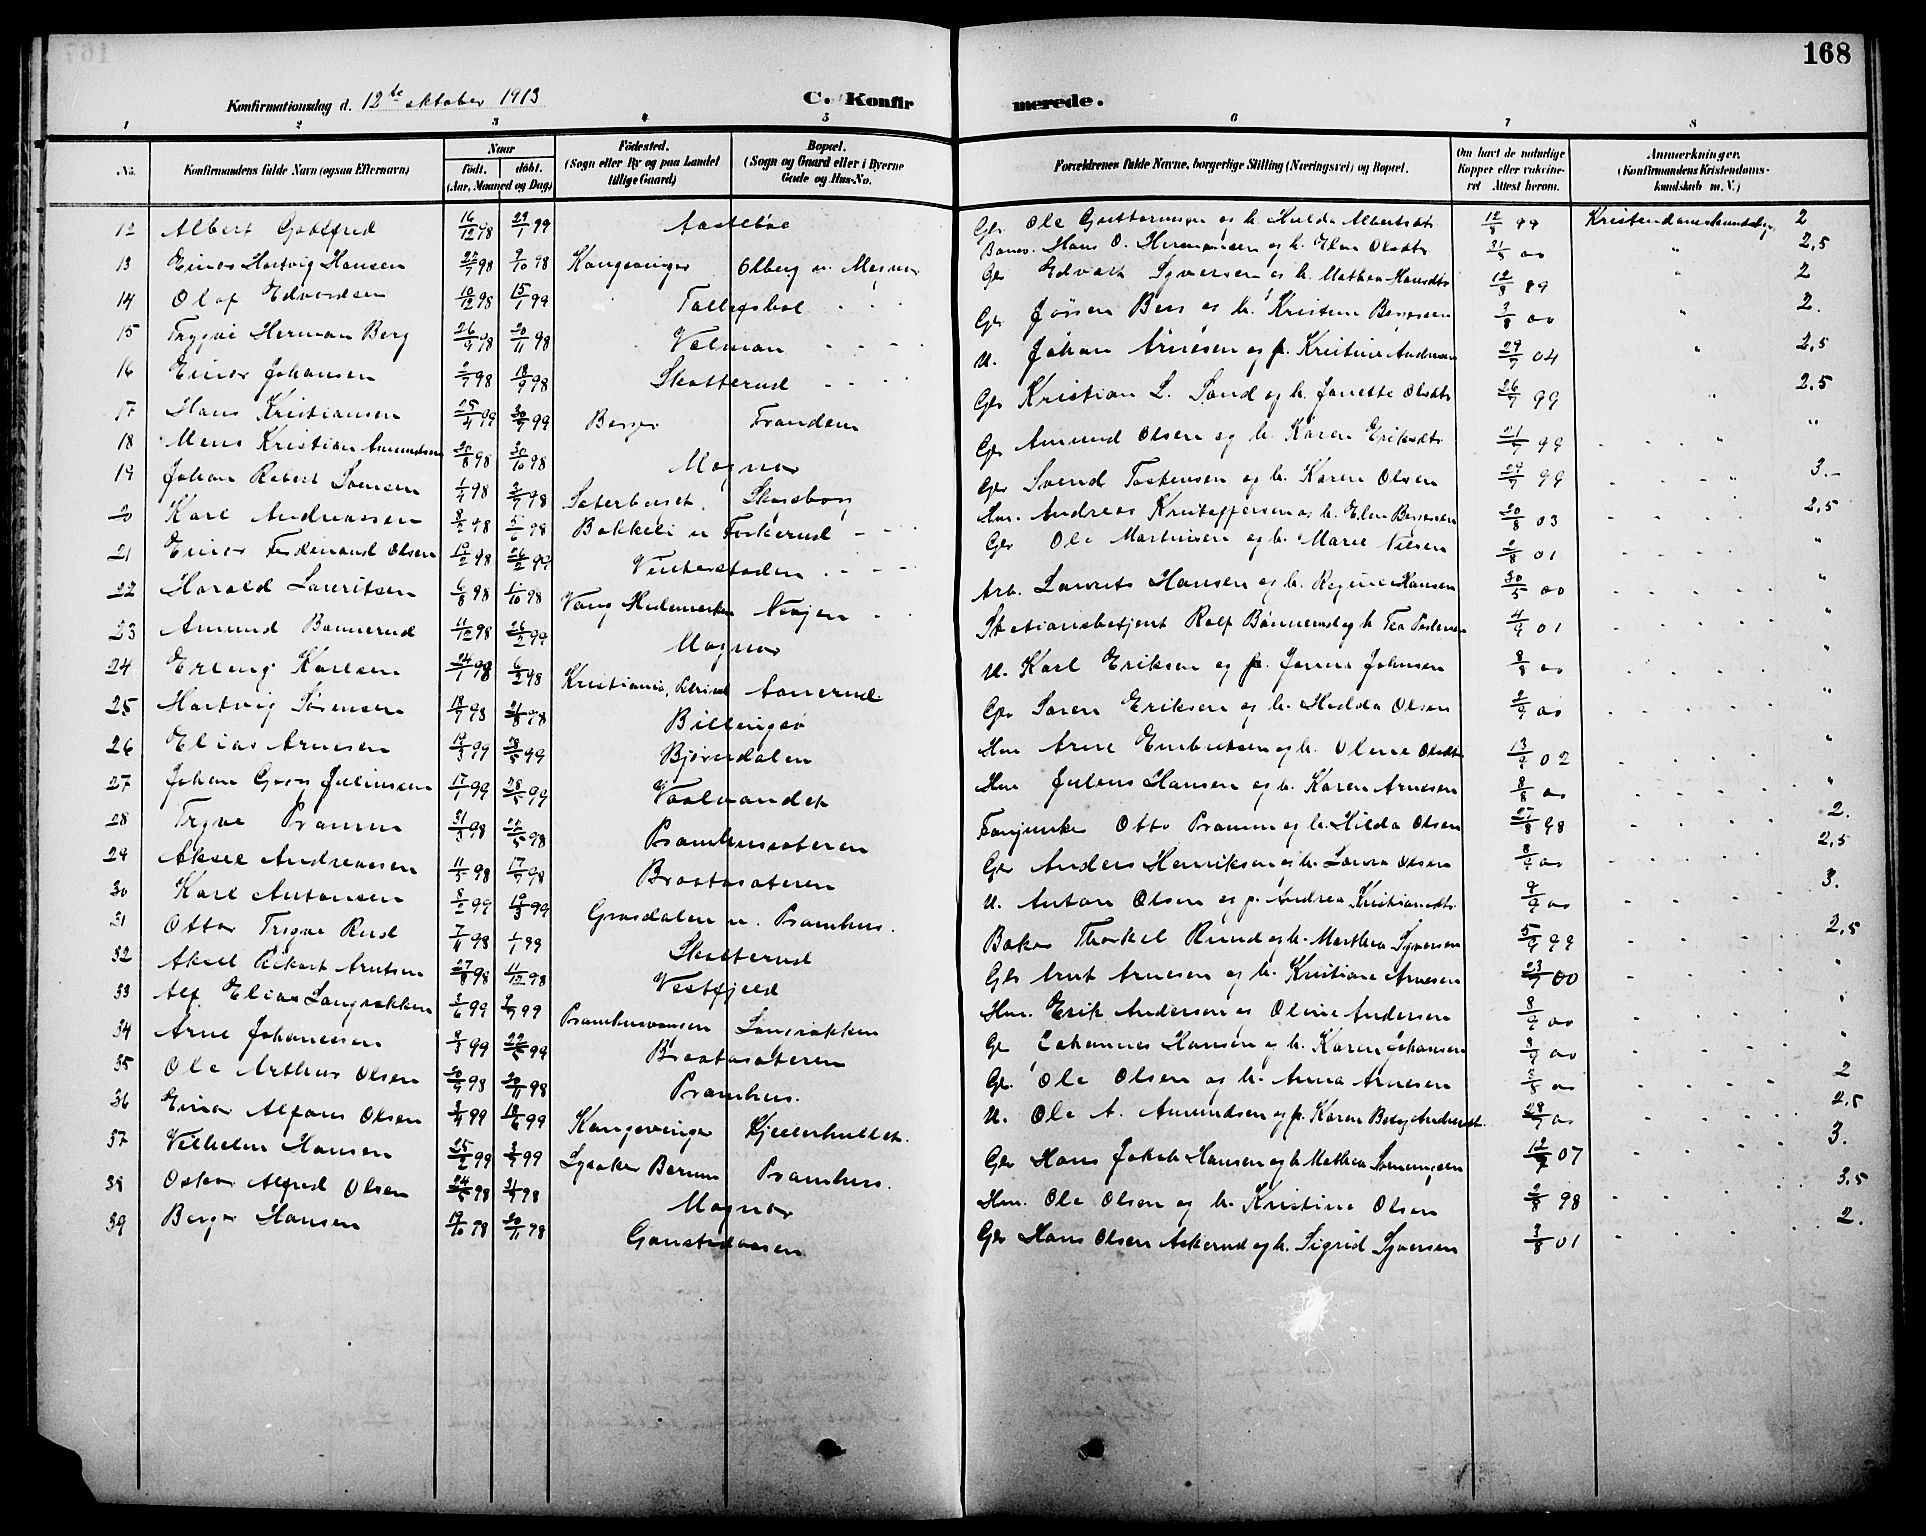 168
Konfirmationsdag d. 12te oktober 1913 C. Konfirmerede.
1 2 3 4 5 6 7 8
No. Konfirmandens fulde Navn (ogsaa Efternavn) Naar født. døbt. (Aar, Maaned og Dag) Fødested. (Sogn eller By og paa Landet tillige Gaard) Bopæl. (Sogn og Gaard eller i Byerne Gade og Hus-No. Forældrenes fulde Navne, borgerlige Stilling (Næringsvei) og Bopæl. Om havt de naturlige Kopper eller vakcineret Attest herom. Anmærkninger. (Konfirmandens Kristendomskundskab m. V.)
12 Albert Gottfred 16/12 98 29/1 99 Aastebøe Gbr Ole Guttormsen og h. Hulda Albertsdt 12/8 99 2
13 Einar Hartvig Hansen 98 9/10 98 Kongsvinger Olberg u. Magnor Hans O. Hermansen og h. Elen Olsdt 31/5 00 " 2,5
14 Olaf Edvardsen 10/12 98 15/1 99 Gbr Edvart Syversen og h. Mathea Hansdt 12/8 99 " 2
15 Trygve Herman Berg 26/9 98 20/11 98 Velman Gbr Jørgen Berg og h. Kristine 3/8 00 " 2.
16 Einar Johansen 2/7 98 18/9 98 Skotterud U. Johan Arnesen og p. Kristine Andresen 29/7 04 " 2,5
17 Hans Kristiansen 25/4 99 30/7 99 Berger Trandem Gbr Kristian L. Sand og h. Janette Olsdt 26/7 99 " 2,5
18 Mens Kristian Amundsen 30/8 98 30/10 98 Magnor Gbr Amund Olsen og h. Karen Eriksdt 21/7 99 " "
19 Johan Robert Svensen 1/4 98 3/7 98 Gbr Svend Tostensen og h. Karen Olsen 29/7 99 " 3.-
20 Karl Andreassen 98 98 Hm. Andreas Kristoffersen og h. Elen 20/8 03 2,5
21 Einar Ferdinand Olsen 98 26/2 99 Bakkeli u Foskerud Gbr Ole Martinsen og h. Marie Nilsen 2/8 01 "
22 Harald Lauritsen 6/8 98 1/10 98 Arb. Laurits Hansen og h. Regine Hansen 30/5 00 "
23 Amund Bønnerud 11/12 98 26/2 99 Vang Hedemarken Stationsbetjent Rolf Bønnerud og h. Pedersen 4/9 01 "
24 Erling Karlsen 24/1 98 6/2 98 Magnor U. Karl Eriksen og p. Jonna Johnsen 8/8 00 "
25 Hartvig Sørensen 18/7 98 21/8 98 Kristiania, Aanerud Gbr Søren Eriksen og h. Hedda Olsen 2/9 00 "
26 Elias Arnesen 19/3 99 28/5 99 Hm Arne Embretsen og h. Oline Olsdt 13/9 02 "
27 Johan Georg Juliussen 17/1 99 28/5 99 Bjørndalen Hm Julius Hansen og h. Karen Arnesen 8/8 00 "
28 Trygve Pramm 31/3 98 22/5 98 Vaalmandet Fanjunker Otto Pramm og h. Hilda Olsen 27/8 98 2.
29 Aksel Andreassen 11/5 98 17/7 98 Pramhussæteren Gbr Anders Henriksen og h. Laura Olsen 8/9 00 2,5
30 Karl Antonsen 8/2 99 19/3 99 Braatasæteren U. Anton Olsen og p. Andrea Kristiansdt 9/9 00 3.
31 Ottar Trygve Rud 7/11 98 1/1 99 Grasdalen u. Pramhus. Baker Thorkel Ruud og h. Marthea Syversen 5/9 99 2,5
32 Aksel Rikart Arntsen 27/8 98 11/12 98 Skotterud Gbr Arnt Arnesen og h. Kristiane Arnesen 23/7 00 "
33 Alf Elias Langrakken 3/6 99 2/7 99 Vestfjeld Hm. Erik Andersen og Oline Andersen 8/9 00 "
34 Arne Johannesen 9/3 99 22/5 99 Langrakken G Johannes Hansen og h. Karen Johansen 8/9 00 "
35 Ole Arthur Olsen 20/9 98 20/11 98 Braatasæteren G. Ole Olsen og h. Anna Arnesen 00 2
36 Einar Alfons Olsen 3/4 99 18/6 99 Pramhus. U. Ole A. Amundsen og p. Karen Berg Andresdt. 29/7 00 2,5
37 Vilhelm Hansen 25/2 99 2/7 99 Kongsvinger Kjellerhullet. Gbr Hans Jakob Hansen og h Mathea 12/7 07 3.
38 Oskar Alfred Olsen 24/5 98 31/7 98 Lysaker Bærum Pramhus. Hm. Ole Olsen og h. Kristine Olsen 2/8 98 3,5
39 Berger Hansen 19/10 98 20/11 98 Magnor Gbr Hans Olsen Askerud og h. Sigrid Syversen 3/8 01 2.